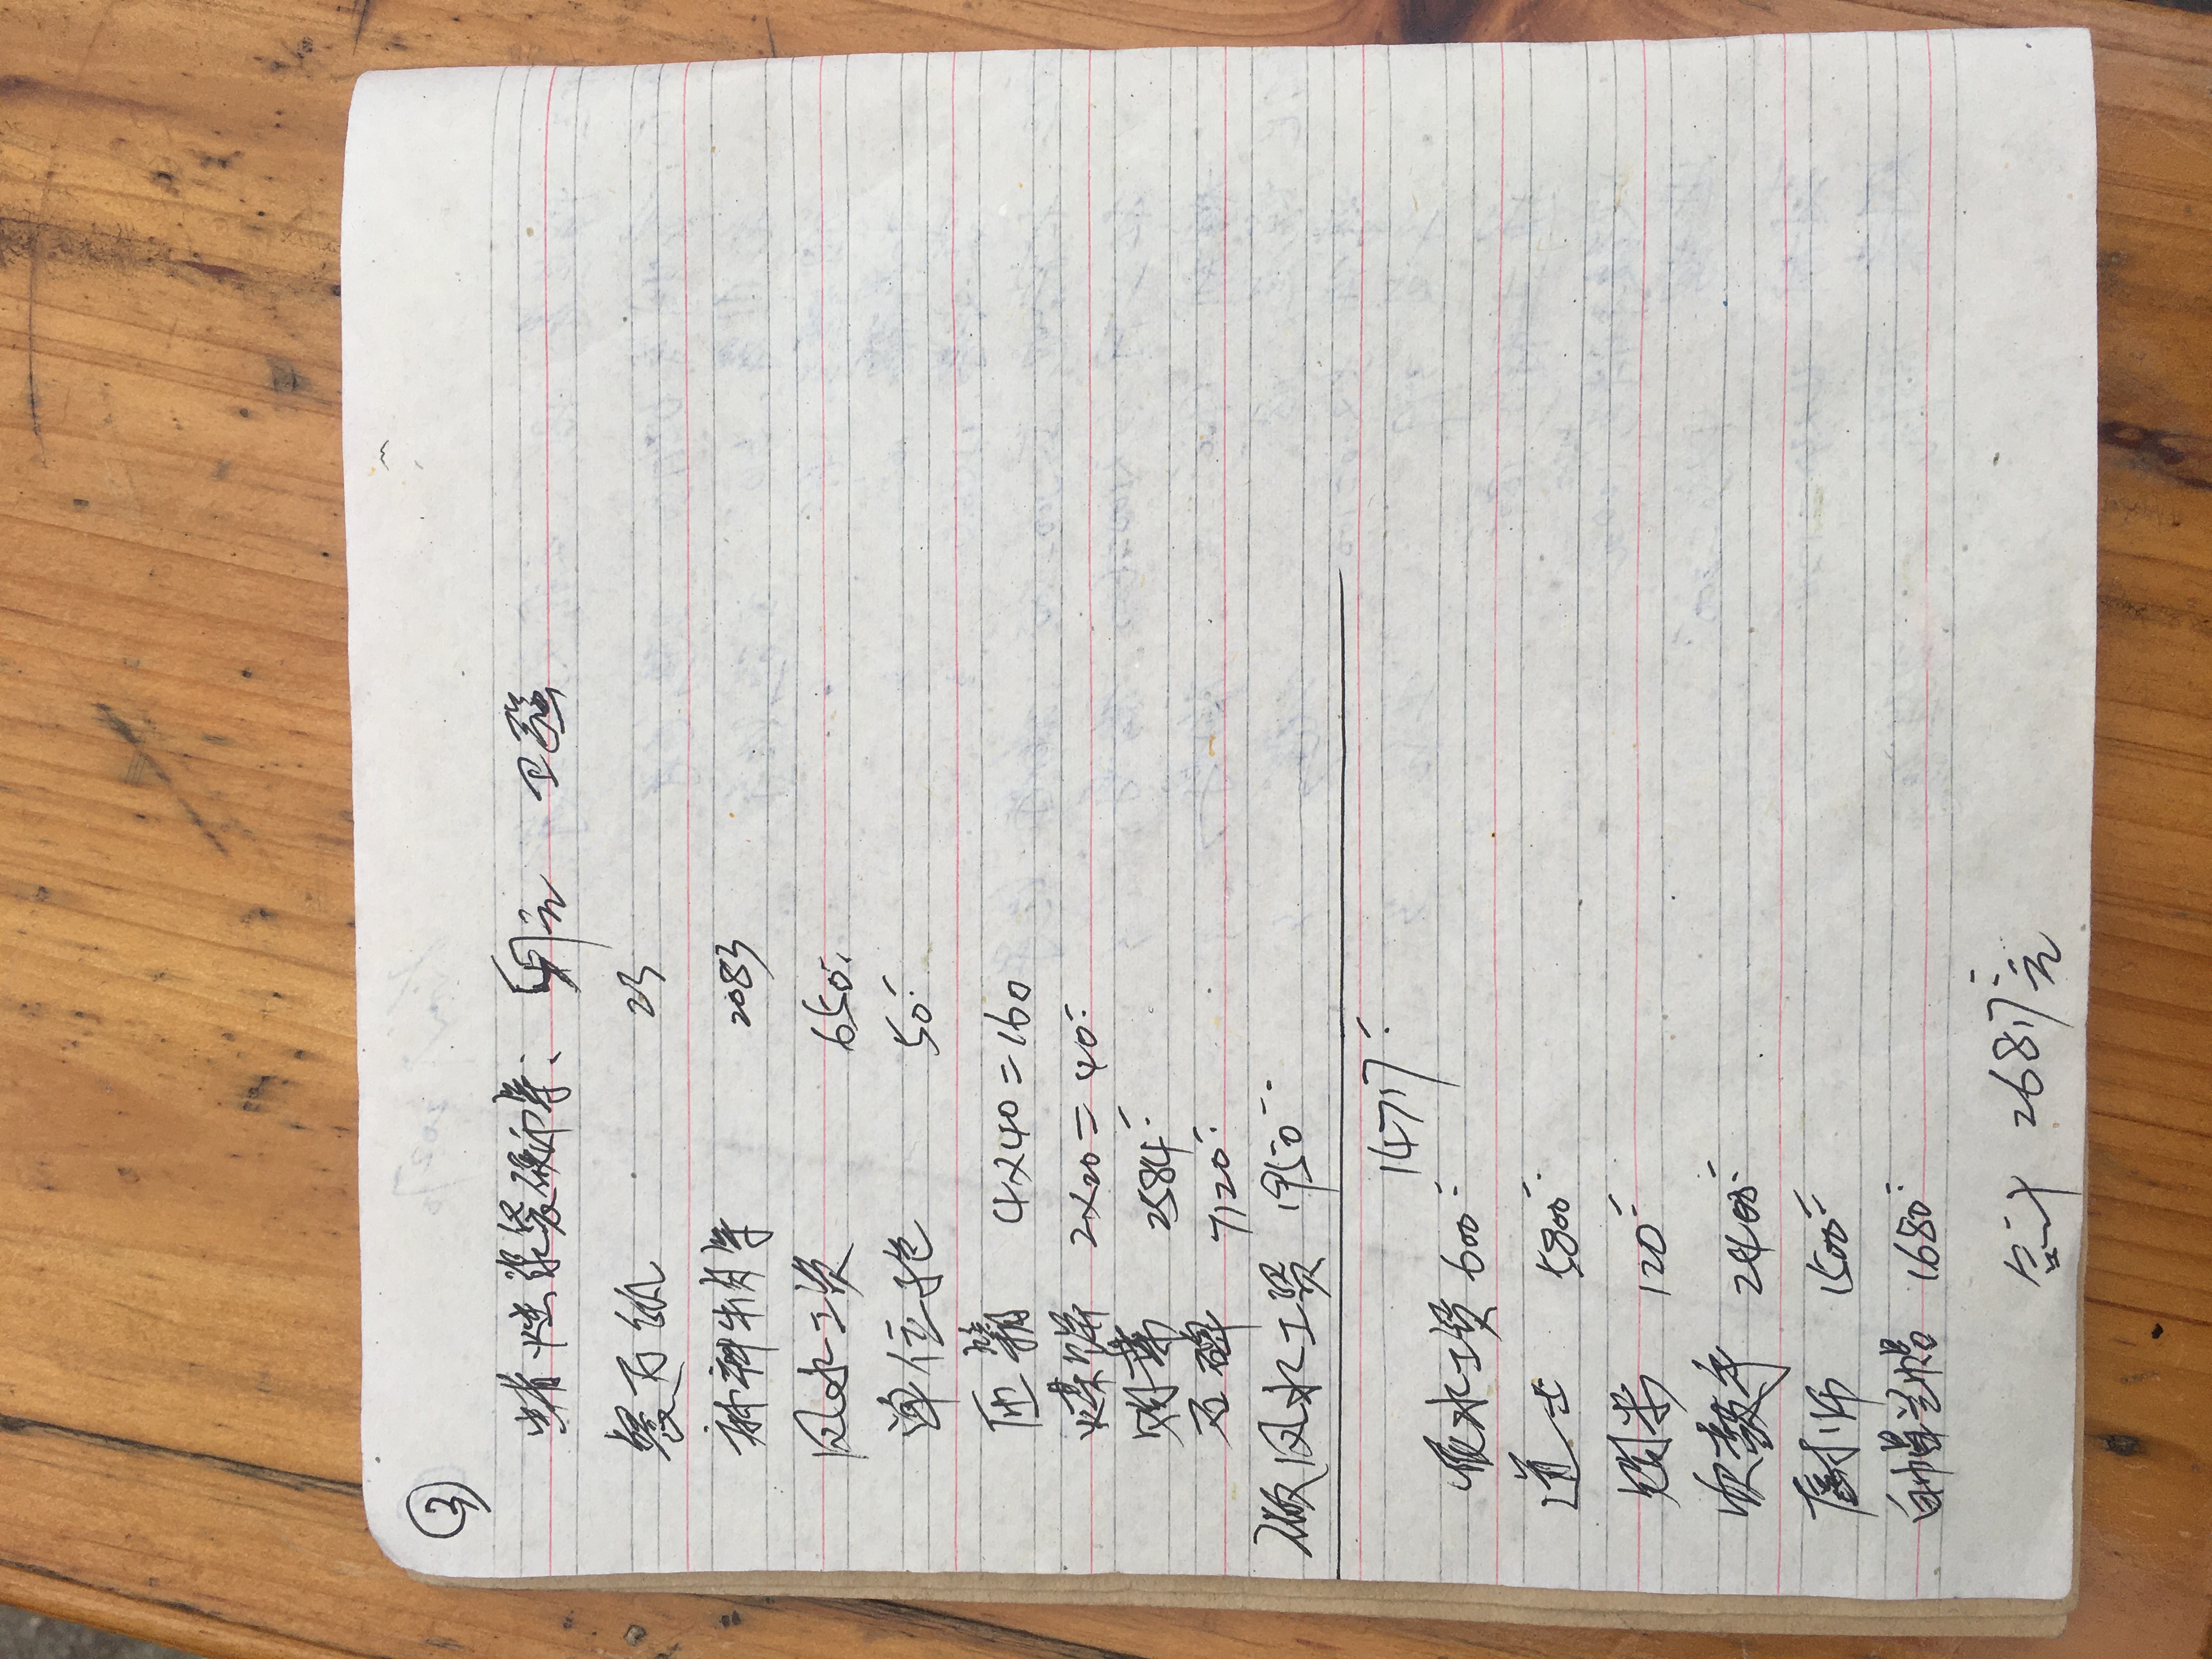 ③
蜡烛 袋硬币等: 57元 卫强
餐巾纸 23
麻料牛肉等 2083
风水工资 650
单位 50
4×40=160
煤饼 2×20=40
购菜 2584
石碑 7120
做风水工资 1950
14717
水工资 600
道士 5800
购米 120
吹鼓手 2400
厨师 1500
白帽兰帽 1680
合计 26817元